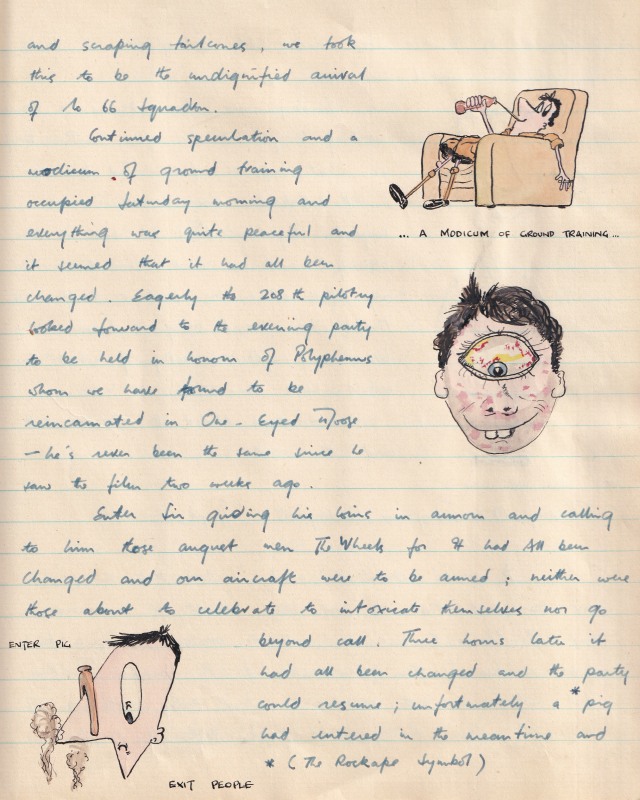 and scraping tailcones, we took
this to be the undignified arrival
of No 66 Squadron.
Continued speculation and a
modicum of ground training
occupied Saturday morning and
everything was quite peaceful and
it seemed that it had all been
changed. Eagerly the 208 th pilotry
looked forward to the evening party
to be held in honour of Polyphemus
whom we have found to be
reincarnated in One-Eyed Moose
- he's never been the same since he
saw the film two weeks ago.
Enter Sir girding his loins in armour and calling
to him those august men The Wheels for It had All been
Changed and our aircraft were to be armed; neither were
those about to celebrate to intoxicate themselves nor go
beyond call. Three hours later it
had all been changed and the party
could resume; unfortunately a * pig
had entered in the meantime and
* (The Rockape Symbol)
... A MODICUM OF GROUND TRAINING...
ENTER PIG
EXIT PEOPLE